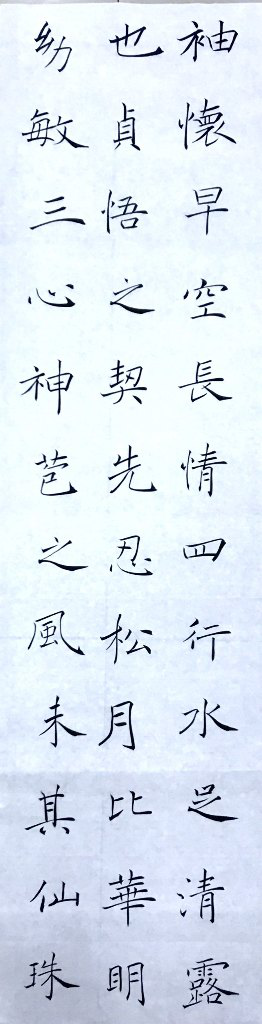 袖懷早空長情四行水足清露
也貞悟之契先忍松月比華明
幼敏三心神芭之風未其仙珠